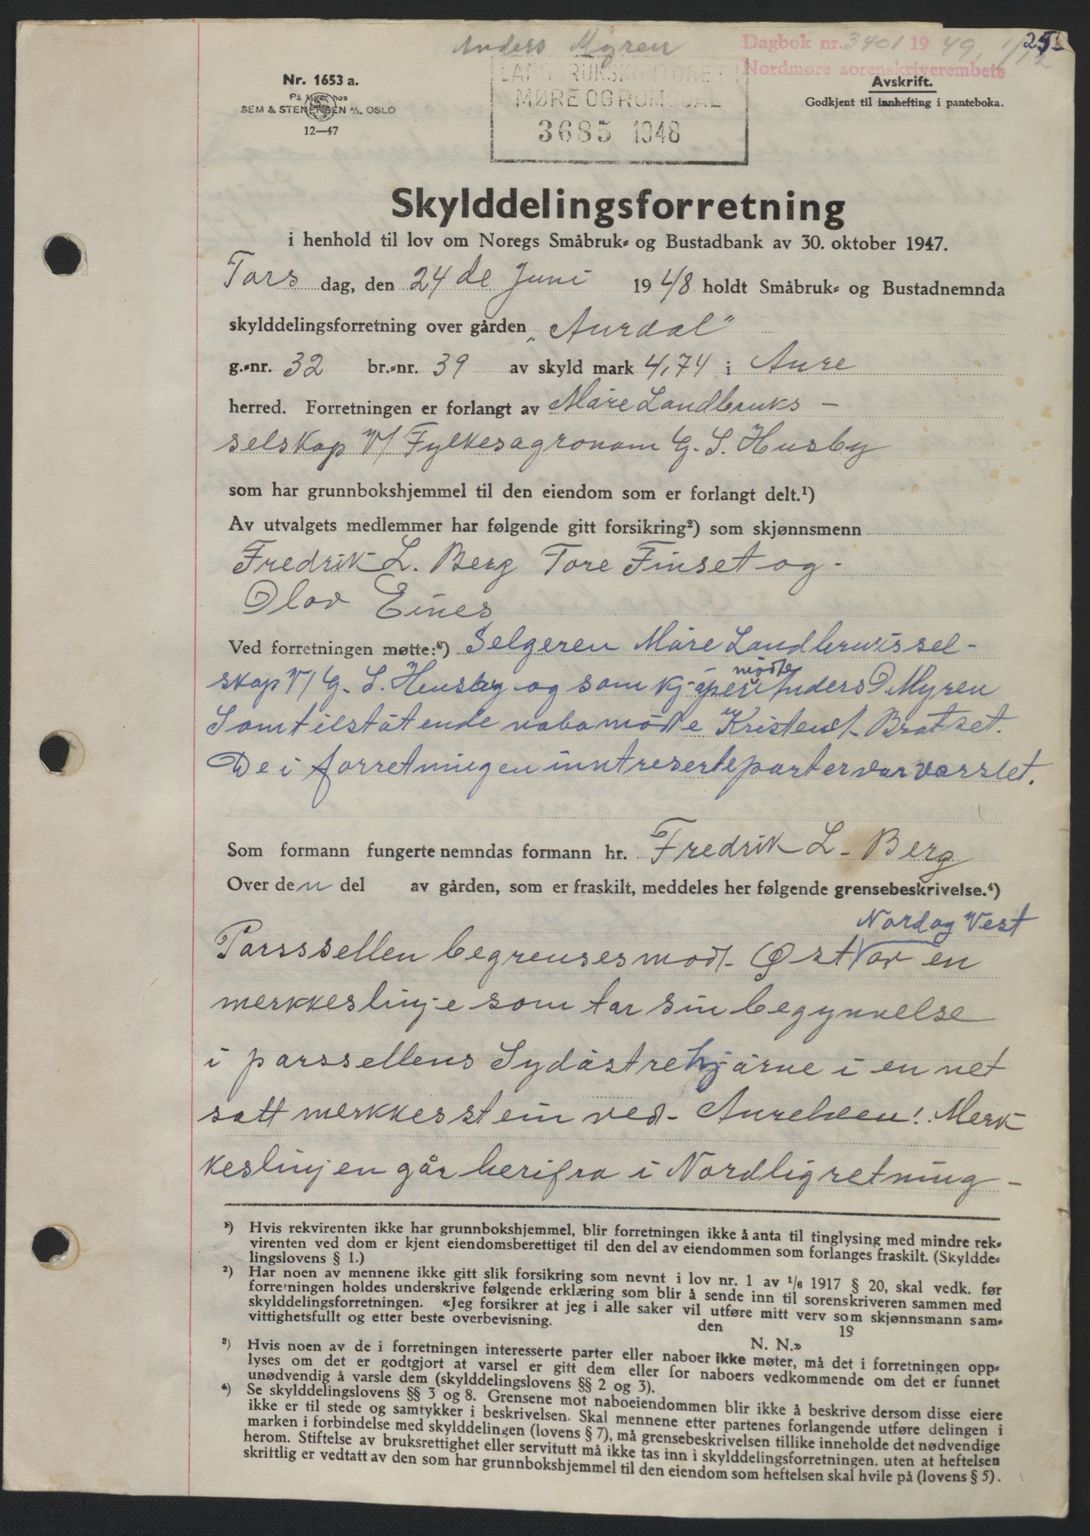 Anders Myren
Dagbok nr. 3401 19 49, 1/12
Nordmøre sorenskriverembete
25
Nr. 1653 a.
På lager hos
SEM & STENERSEN A/S, OSLO
12—47
LANDBRUKSKONTORET
MØRE OG ROMSDAL
3685 1948
Avskrift.
Godkjent til innhefting i panteboka.
Skylddelingsforretning
i henhold til lov om Noregs Småbruk- og Bustadbank av 30. oktober 1947.
Tors dag, den 24 de Juni 1948 holdt Småbruk- og Bustadnemnda
skylddelingsforretning over gården „Aurdal“
g.-nr. 32 br.-nr. 39 av skyld mark 4,74 i Aure
herred. Forretningen er forlangt av Møre Landbruks-
selskap v/ Fylkesagronom G. S. Husby
som har grunnbokshjemmel til den eiendom som er forlangt delt.¹)
Av utvalgets medlemmer har følgende gitt forsikring²) som skjønnsmenn
Fredrik L. Berg Tore Finset og-
Olav Eines
Ved forretningen møtte:³) Selgeren Møre Landbruksssel-
skap v/ G. S. Husby og som kjøper møtte Anders O Myren
Som tilstøtende nabo møtte Kristen Bratset.
De i forretningen inntreserte parter var varslet.
Som formann fungerte nemndas formann hr. Fredrik L. Berg
Over den del av gården, som er fraskilt, meddeles her følgende grensebeskrivelse.⁴)
Nord og Vest
Parsssellen begrenses mot- Øst av en
merkkeslinje som tar sin begynnelse
i parssellens Sydøstre hjørne i en net
satt merkkesstein ved- Aureelven! Merk-
keslinjen går herifra i Nordlig retning-
¹) Hvis rekvirenten ikke har grunnbokshjemmel, blir forretningen ikke å anta til tinglysing med mindre rek-
virenten ved dom er kjent eiendomsberettiget til den del av eiendommen som forlanges fraskilt. (Skyldde-
lingslovens § 1.)
²) Har noen av mennene ikke gitt slik forsikring som nevnt i lov nr. 1 av ¹/₆ 1917 § 20, skal vedk. før
forretningen holdes underskrive følgende erklæring som blir å sende inn til sorenskriveren sammen med
skylddelingsforretningen. «Jeg forsikrer at jeg i alle saker vil utføre mitt verv som skjønnsmann sam-
vittighetsfullt og etter beste overbevisning.
den 19
N. N.»
³) Hvis noen av de i forretningen interesserte parter eller naboer ikke møter, må det i forretningen opp-
lyses om det er godtgjort at varsel er gitt dem eller for naboers vedkommende om det er funnet
unødvendig å varsle dem (skylddelingslovens §§ 2 og 3).
⁴) Se skylddelingslovens §§ 3 og 8. Grensene mot naboeiendommen blir ikke å beskrive dersom disse eiere
ikke er til stede og samtykker i beskrivelsen. Skal mennene etter partenes forlangende utføre delingen i
marken i forbindelse med skylddelingen (lovens § 7), må grensebeskrivelsen tillike inneholde det nødvendige
herom. Stiftelse av bruksrettighet eller servitutt må ikke tas inn i skylddelingsforretningen, uten at heftelsen
skriftlig er vedtatt av den som har grunnbokshjemmel til den eiendom som heftelsen skal hvile på (lovens § 5).